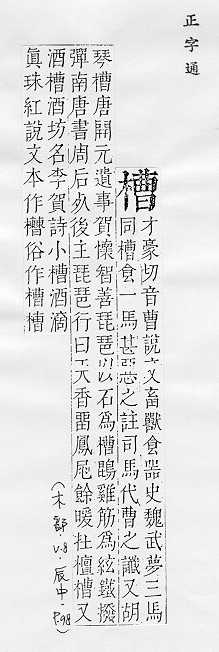 正字通
槽
才豪切音曹說文畜獸食器史魏武夢三馬
同槽食一馬甚惡之註司馬代曹之讖又胡
琴槽唐開元遺事賀懷智善琵琶以石爲槽鵾雞筋爲絃鐵撥
彈南唐書周后歿後主琵琶行曰天香畱鳳尾餘暖在檀槽又
酒槽酒坊名李賀詩小槽酒滴
眞珠紅說文本作 俗作槽
(木部.V.8.辰中.P.98)